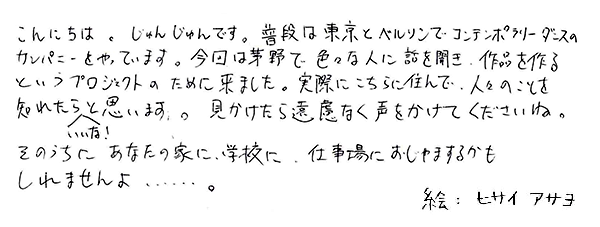 こんにちは。じゅんじゅんです。普段は東京とベルリンでコンテンポラリーダンスの
カンパニーをやっています。今回は茅野で色々な人に話を聞き、作品を作る
というプロジェクトのために来ました。実際にこちらに住んで、人々のことを
知れたらと思います。見かけたら遠慮なく声をかけてくださいね。
いいな!
そのうちに あなたの家に、学校に、仕事場におじゃまするかも
しれませんよ……。
絵:ヒサイ アサヨ